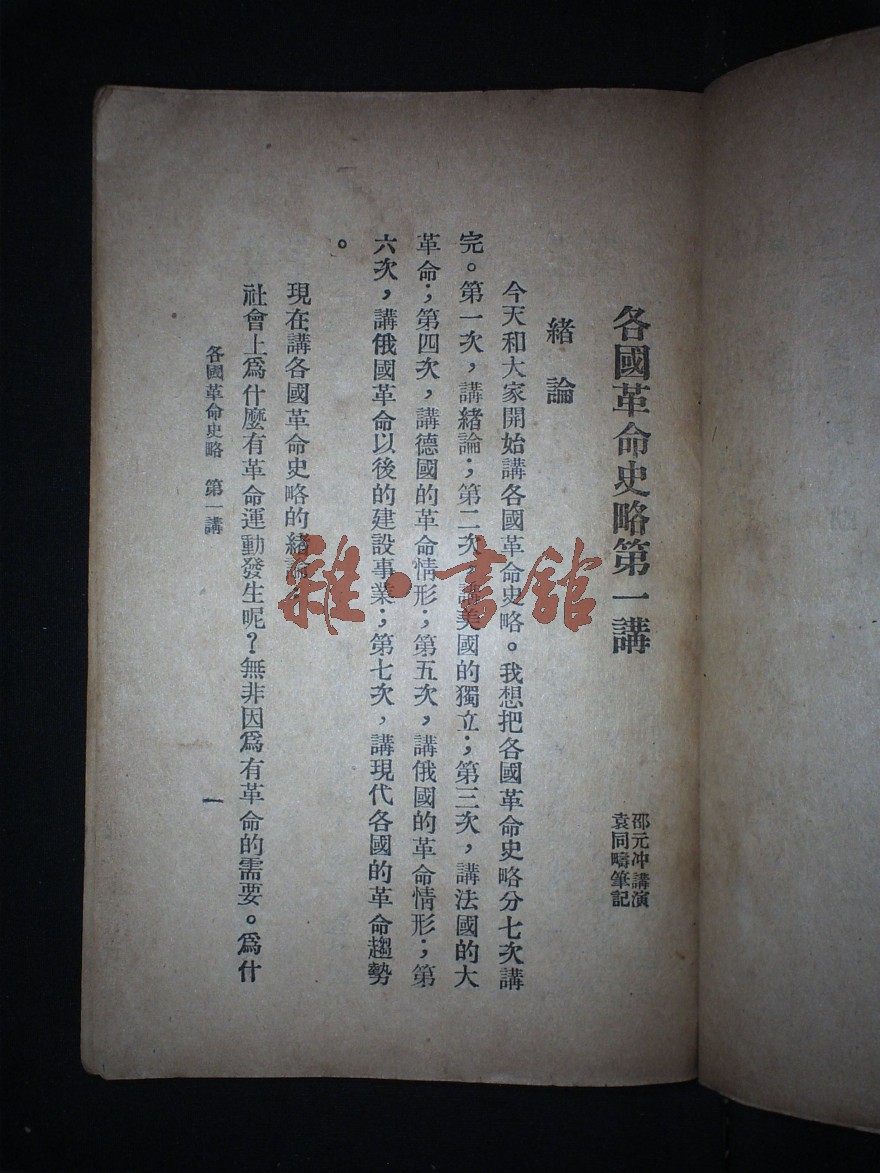 各國革命史略第一講
邵元冲講演
袁同疇筆記
緒論
今天和大家開始講各國革命史略。我想把各國革命史略分七次講
完。第一次，講緒論；第二次，講美國的獨立；第三次，講法國的大
革命；第四次，講德國的革命情形；第五次，講俄國的革命情形；第
六次，講俄國革命以後的建設事業；第七次，講現代各國的革命趨勢
。
現在講各國革命史略的緒論：
社會上爲什麼有革命運動發生呢？無非因爲有革命的需要。爲什
各國革命史略 第一講
一
雜·書館